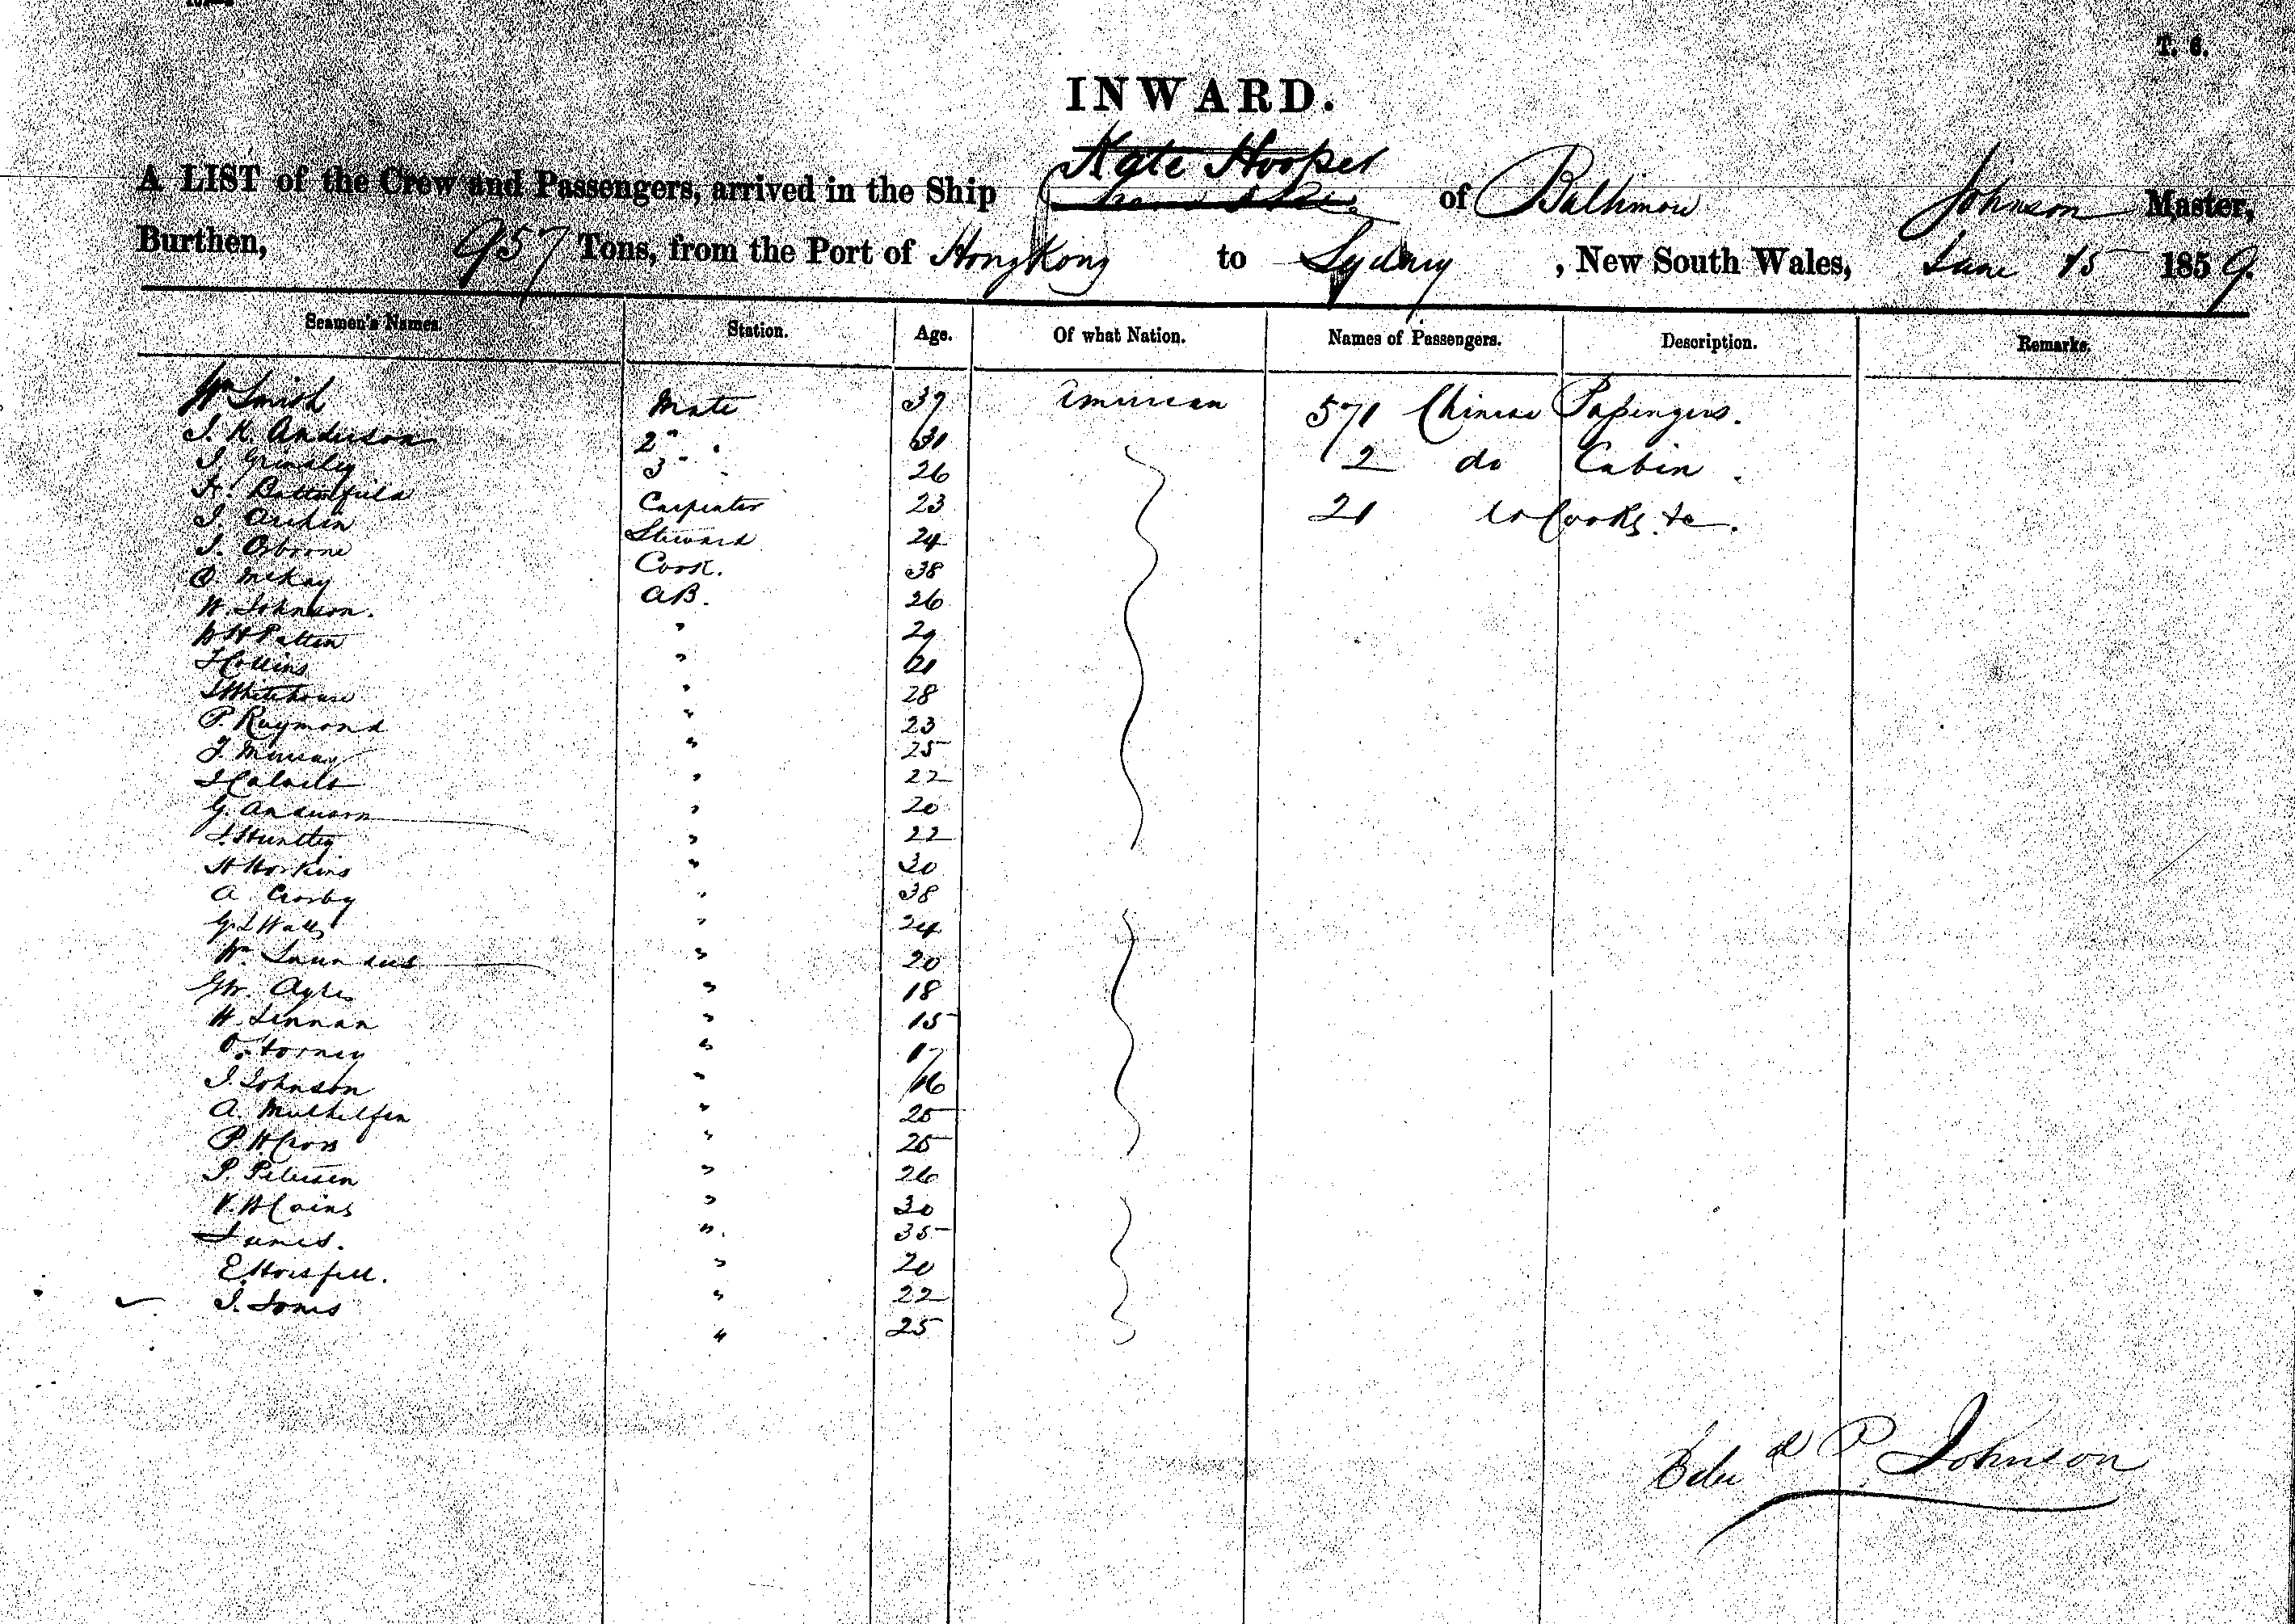 T. 6.
INWARD.
Kate Hooper
A LIST of the Crew and Passengers, arrived in the Ship of Baltimore Johnson Master,
Burthen, 957 Tons, from the Port of HongKong to Sydney , New South Wales, June 15 1859.
Seamen's Names. Station. Age. Of what Nation. Names of Passengers. Description. Remarks.
Wm Smith Mate 37 American 571 Chinese Passengers.
J. K. Anderson 2" " 31
J. Grimsley 3 " " 26 2 do Cabin.
Butterfield Carpenter 23 21 do Cooks &c.
J. Steward 24
J. Osborne Cook. 38
McKay AB. 26
W. Johnson. " 29
Patten " 21
J Collins " 28
J Whitehouse " 23
P. Raymond " 25
J. Murray " 22
J Calvert " 20
G. Anderson " 22
J. Huntley " 30
H Hopkins " 38
A. Crosby " 24
G. L Walls " 20
Wm Saunders " 18
GW. Ayres " 15
H. Lennan " 17
O. Forney " 16
J. Johnson " 25
A. " 25
P. H Cross " 26
P. Petersen " 30
Cains " 35
James. " 20
E. " 22
J. Jones " 25
P. Johnson